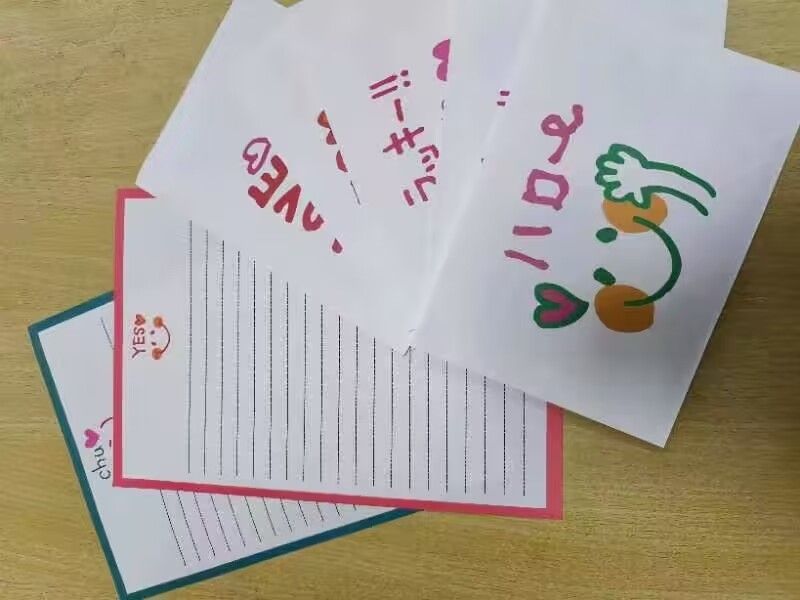 ハロー
ラッキー!!
LOVE♡
YES♥
chu♥